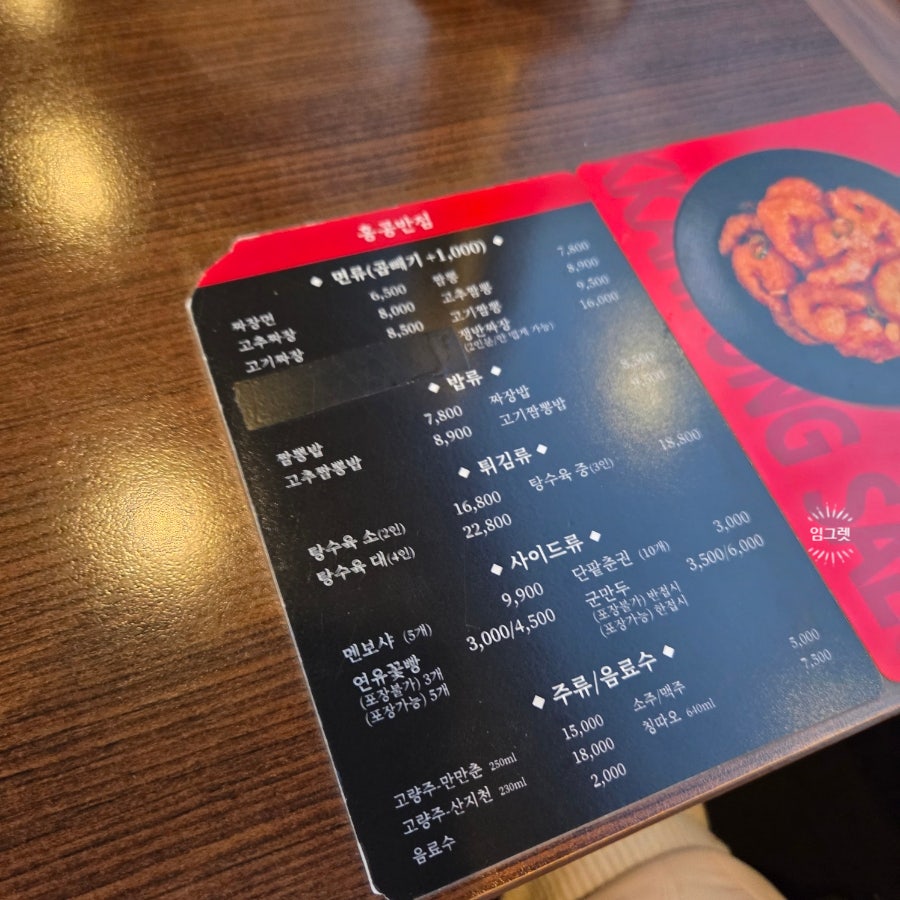 홍콩반점
면류(곱빼기 +1,000)
짜장면 6,500 짬뽕 7,800
고추짜장 8,000 고추짬뽕 8,900
고기짜장 8,500 고기짬뽕 9,500
쟁반짜장 16,000
(2인분/면 곱빼기 가능)
밥류
짬뽕밥 7,800 짜장밥
고추짬뽕밥 8,900 고기짬뽕밥
튀김류
탕수육 소(2인) 16,800 탕수육 중(3인) 18,800
탕수육 대(4인) 22,800
사이드류
멘보샤 (5개) 9,900 단팥춘권 (10개) 3,000
연유꽃빵 3,000/4,500 군만두 3,500/6,000
(포장불가) 3개 (포장불가) 반접시
(포장가능) 5개 (포장가능) 한접시
주류/음료수
고량주-만만춘 250ml 15,000 소주/맥주 5,000
고량주-산지천 230ml 18,000 칭따오 640ml 7,500
음료수 2,000
임그렛